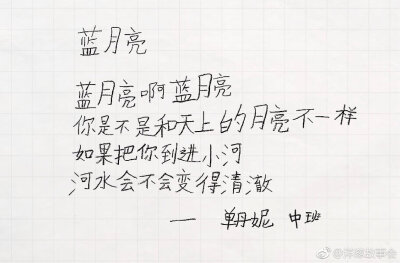 蓝月亮
蓝月亮啊蓝月亮
你是不是和天上的月亮不一样
如果把你到进小河
河水会不会变得清澈
— 丹妮 中班
@洋葱故事会